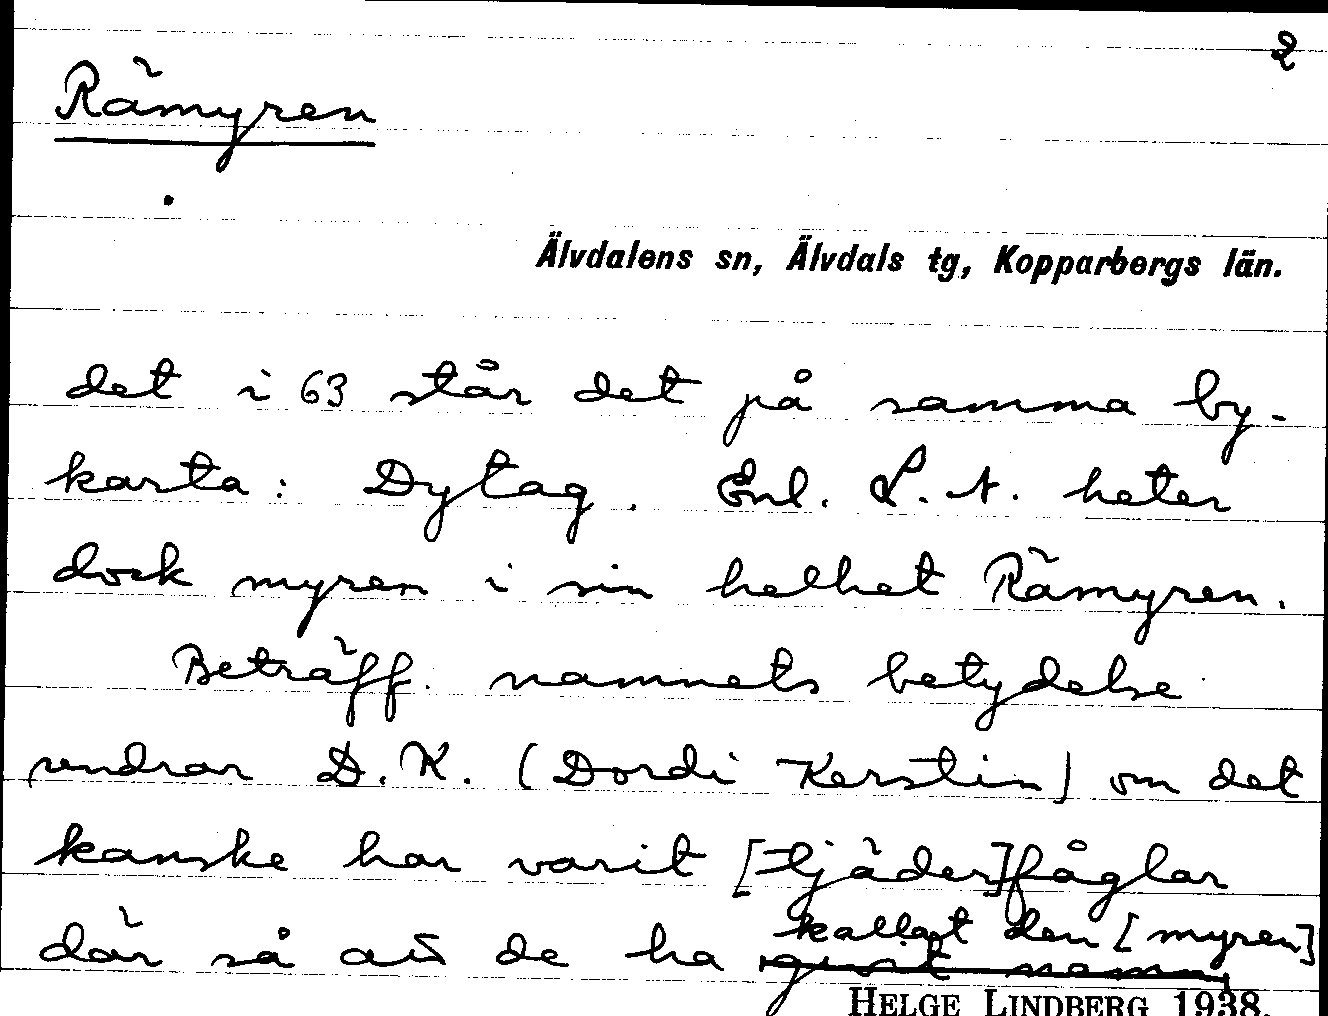 2
Rämyren
Älvdalens sn, Älvdals tg, Kopparbergs län.
det i 63 står det på samma by-
karta: Dytag. Enl. L. A. heter
dock myren i sin helhet Rämyren.
Beträff. namnets betydelse
undrar D. K. (Dordi Kerstin) om det
kanske har varit [tjäder]fåglar
kallat den [myren]
där så att de ha givit namn
HELGE LINDBERG 1938.